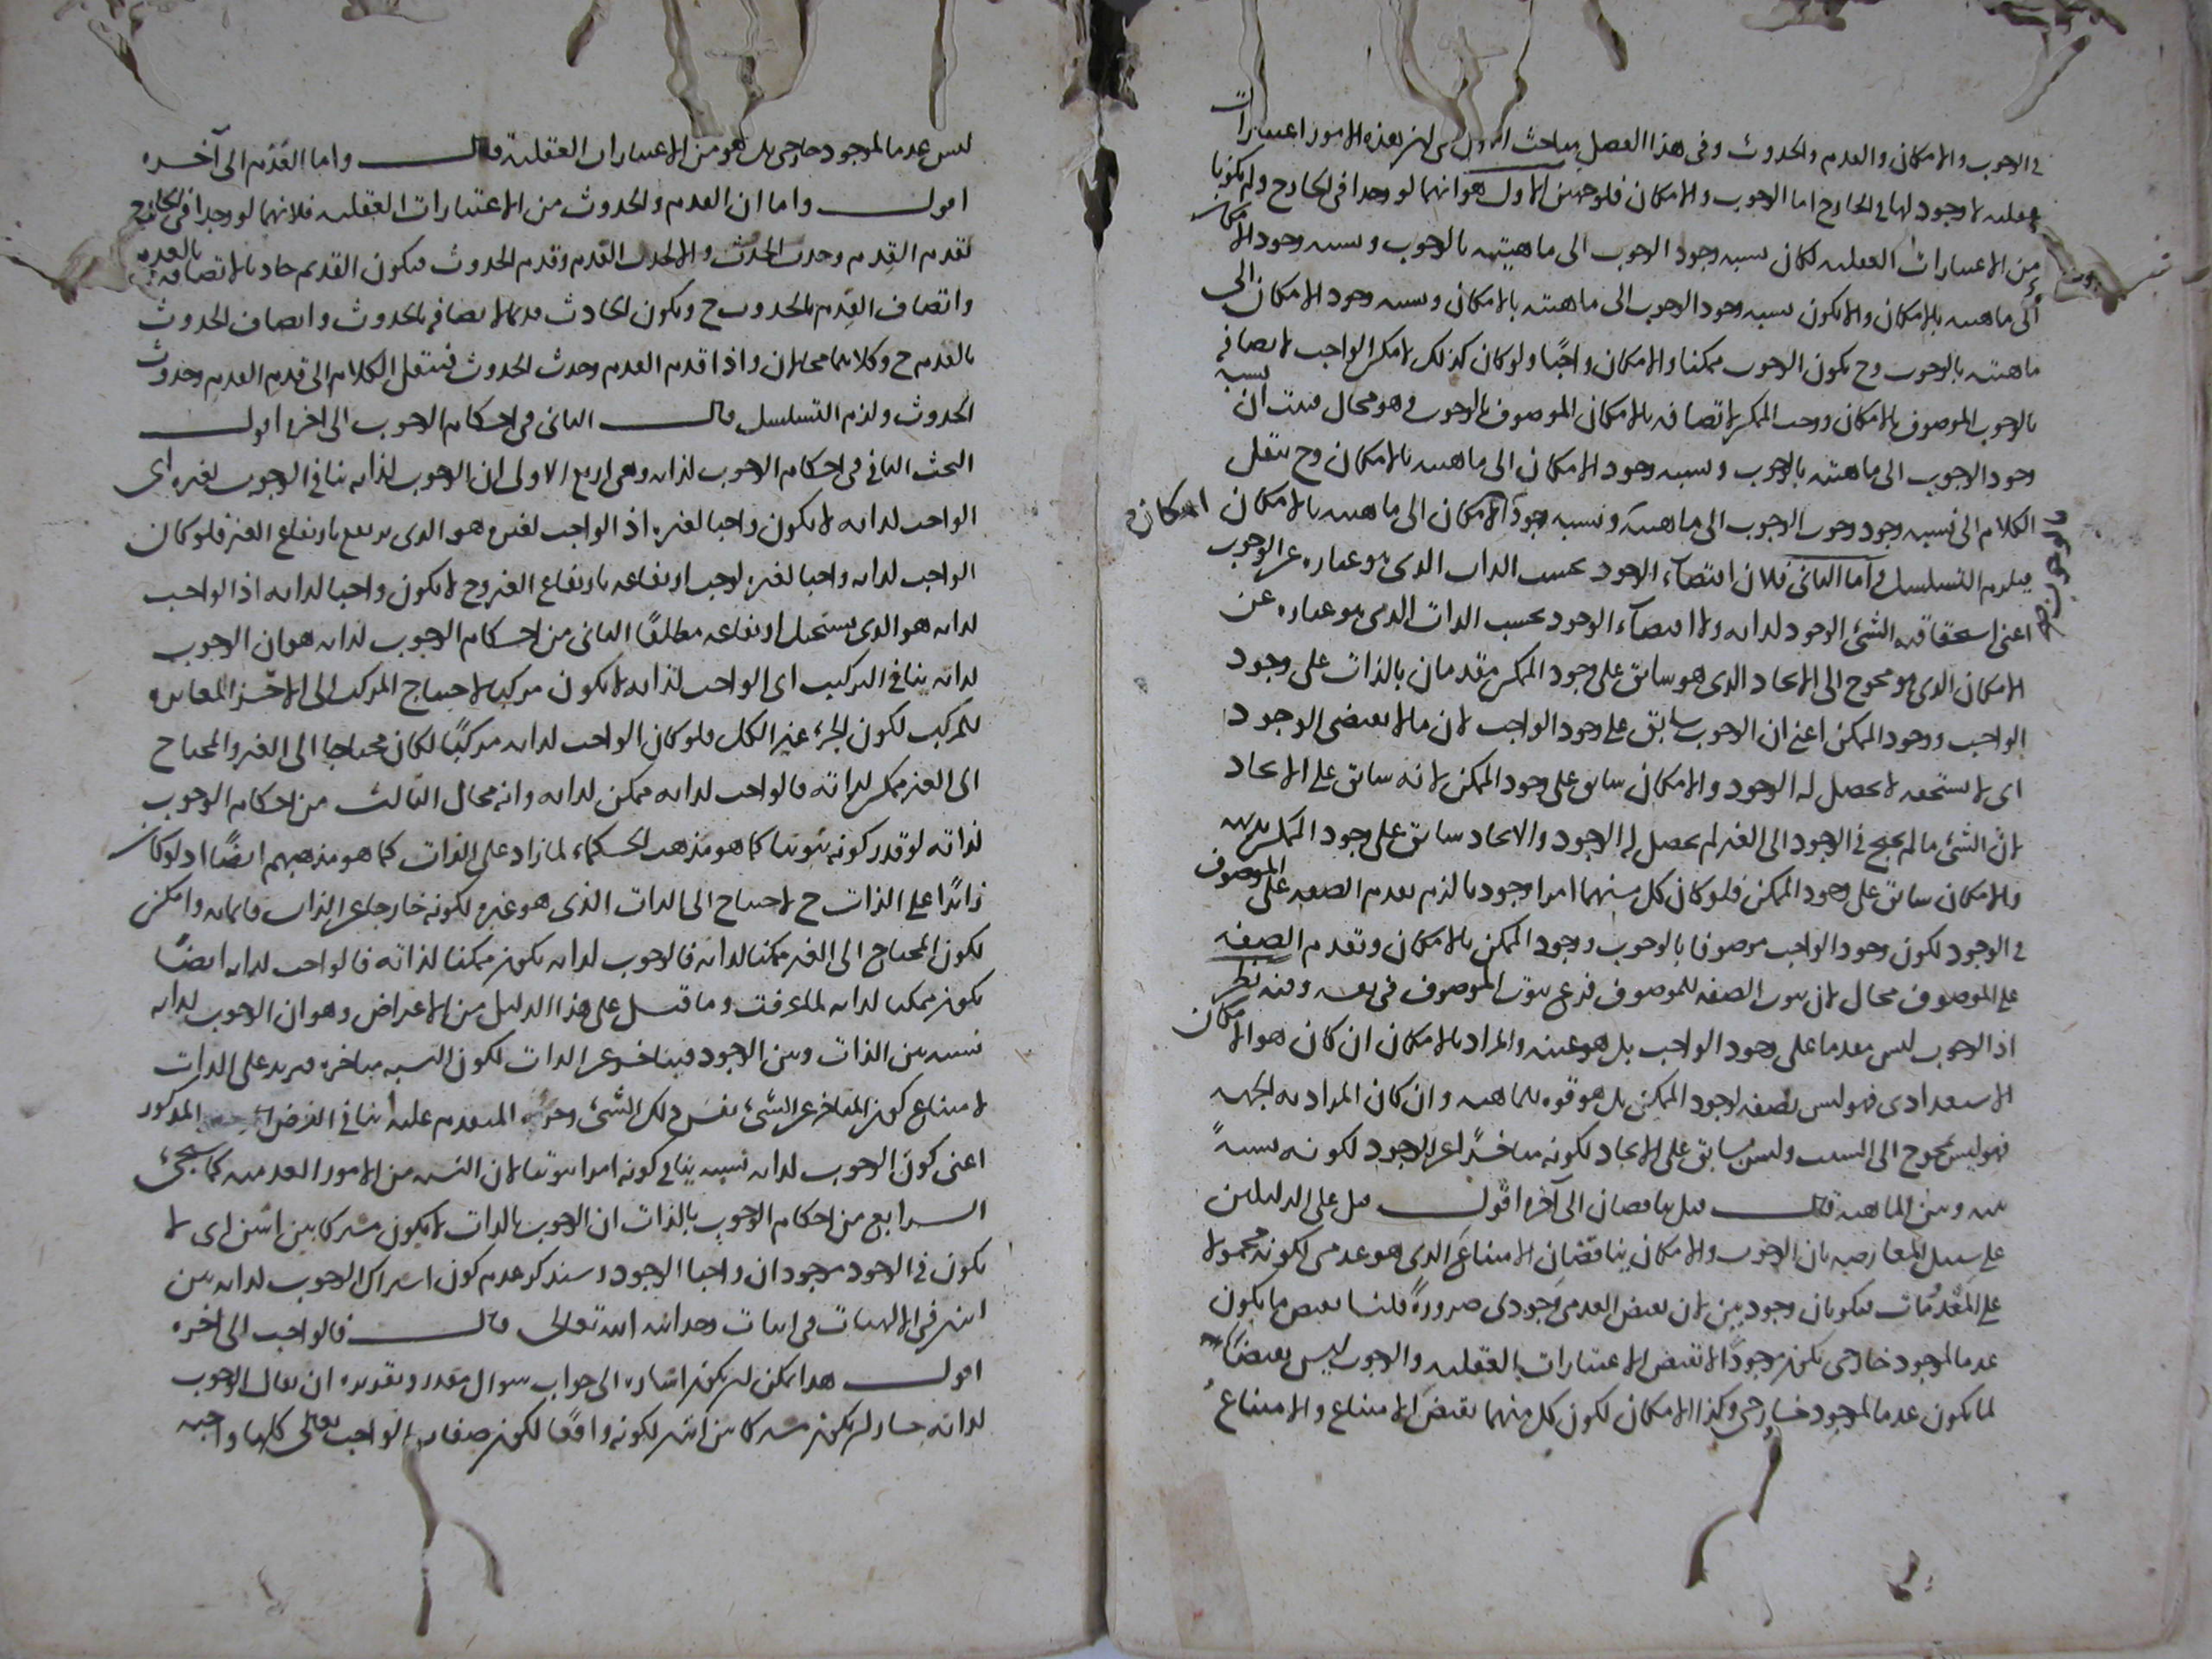 في الوجوب والامكان والقدم والحدوث وفي هذا الفصل مباحث الاول في ان هذه الامور اعتبارات
عقلية لا وجود لها في الخارج اما الوجوب والامكان فلوجهين الاول هو انهما لو وجدا في الخارج ولم يكونا
من الاعتبارات العقلية لكان نسبة وجود الوجوب الى ماهيته بالوجوب ونسبة وجود الامكان
الى ماهيته بالامكان والا يكون نسبة وجود الوجوب الى ماهيته بالامكان ونسبة وجود الامكان الى
ماهيته بالوجوب وح يكون الوجوب ممكنا والامكان واجبًا ولو كان كذلك لامكن الواجب لاتصافه
بالوجوب الموصوف بالامكان ووجب الممكن لاتصافه بالامكان الموصوف بالوجوب وهو محال فثبت ان نسبة
وجود الوجوب الى ماهيته بالوجوب ونسبة وجود الامكان الى ماهيته بالامكان وح ينتقل
الكلام الى نسبة وجود وجوب الوجوب الى ماهيته ونسبة وجود امكان الامكان الى ماهيته بالامكان
بالوجوب
فيلزم التسلسل واما الثاني فلان اقتضاء الوجود بحسب الذات الذي هو عبارة عن الوجوب
اعني استحقاقية الشئ الوجود لذاته ولا اقتضاء الوجود بحسب الذات الذي هو عبارة عن
الامكان الذي هو محوج الى الايجاد الذي هو سابق على وجود الممكن مقدمان بالذات على وجود
الواجب ووجود الممكن اعني ان الوجوب سابق على وجود الواجب لان ما لا يقتضي الوجود
اي لا يستحقه لا يحصل له الوجود والامكان سابق على وجود الممكن لانه سابق على الايجاد
لان الشئ ما لم يحتج في الوجود الى الغير لم يحصل له الوجود والايجاد سابق على وجود الممكن
والامكان سابق على وجود الممكن فلو كان كل منهما امرا وجوديا لزم تقدم الصفة على الموصوف
في الوجود لكون وجود الواجب موصوفا بالوجوب ووجود الممكن بالامكان وتقدم الصفة
على الموصوف محال لان ثبوت الصفة للموصوف فرع ثبوت الموصوف في نفسه وفيه نظر
اذ الوجوب ليس مقدما على وجود الواجب بل هو عينه والمراد بالامكان ان كان هو الامكان
الاستعدادي فهو ليس بصفة لوجود الممكن بل هو قوه للماهية وان كان المراد به الجهة
فهو ليس بمحوج الى السبب وليس بسابق على الايجاد لكونه متاخرًا عن الوجود لكونه نسبةً
بينه وبين الماهية قال قيل يناقضان الى آخره اقول قيل على الدليلين
على سبيل المعارضة بان الوجوب والامكان يناقضان الامتناع الذي هو عدمي لكونه محمولا
على المعدومات فيكونان وجوديين لان نقيض العدمي وجودي ضرورةً قلنا نقيض ما يكون
عدما لموجود خارجي يكون موجودًا لا نقيض الاعتبارات العقلية والوجوب ليس نقيضًا
لما يكون عدما لموجود خارجي وكذا الامكان لكون كل منهما نقيض الامتناع والامتناع
ليس عدما لموجود خارجي بل هو من الاعتبارات العقلية قال واما القدم الى آخره
اقول واما ان القدم والحدوث من الاعتبارات العقلية فلانهما لو وجدا في الخارج
لقدم القدم وحدث الحدث والا لحدث القدم وقدم الحدوث فيكون القديم حادثا لاتصافه بالقدم
واتصاف القدم بالحدوث ح ويكون الحادث قديما لاتصافه بالحدوث واتصاف الحدوث
بالقدم ح وكلاهما محالان واذا قدم القدم وحدث الحدوث فينتقل الكلام الى قدم القدم وحدوث
الحدوث ولزم التسلسل قال الثاني في احكام الوجوب الى اخره اقول
البحث الثاني في احكام الوجوب لذاته وهي اربع الاولى ان الوجوب لذاته ينافي الوجوب لغيره اي
الواجب لذاته لا يكون واجبا لغيره اذ الواجب لغيره هو الذي يرتفع بارتفاع الغير فلو كان
الواجب لذاته واجبا لغيره لوجب ارتفاعه بارتفاع الغير وح لا يكون واجبا لذاته اذ الواجب
لذاته هو الذي يستحيل ارتفاعه مطلقًا الثاني من احكام الوجوب لذاته هو ان الوجوب
لذاته ينافي التركيب اي الواجب لذاته لا يكون مركبا لاحتياج المركب الى الاجزاء المغايرة
للمركب لكون الجزء غير الكل فلو كان الواجب لذاته مركبًا لكان محتاجا الى الغير والمحتاج
الى الغير ممكن لذاته فالواجب لذاته ممكن لذاته وانه محال الثالث من احكام الوجوب
لذاته لو قدر كونه ثبوتيا كما هو مذهب الحكماء لما زاد على الذات كما هو مذهبهم ايضًا اذ لو كان
زائدًا على الذات ح لاحتاج الى الذات الذي هو غيره لكونه خارجا عن الذات قائما به وامكن
لكون المحتاج الى الغير ممكنا لذاته فالوجوب لذاته يكون ممكنا لذاته فالواجب لذاته ايضًا
يكون ممكنا لذاته لما عرفت وما قيل على هذا الدليل من الاعتراض وهو ان الوجوب لذاته
نسبة بين الذات وبين الوجود فيتاخر عن الذات لكون النسبة متاخرة فيزيد على الذات
لامتناع كون المتاخر عن الشئ نفس ذلك الشئ وجزئه المتقدم عليه ينافي الفرض المذكور
اعني كون الوجوب لذاته نسبة ينافي كونه امرا ثبوتيا لان النسبة من الامور العدمية كما سيجئ
الرابع من احكام الوجوب بالذات ان الوجوب بالذات لا يكون مشتركا بين اثنين اي لا
يكون في الوجود موجودان واجبا الوجود وسنذكر عدم كون اشتراك الوجوب لذاته بين
اثنين في الالهيات في اثبات وحدانية الله تعالى قال فالواجب الى اخره
اقول هذا يمكن ان يكون اشارة الى جواب سوال مقدر وتقديره ان يقال الوجوب
لذاته جاز ان يكون مشتركا بين اثنين لكونه واقعًا لكون صفات الواجب تعالى كلها واجبة